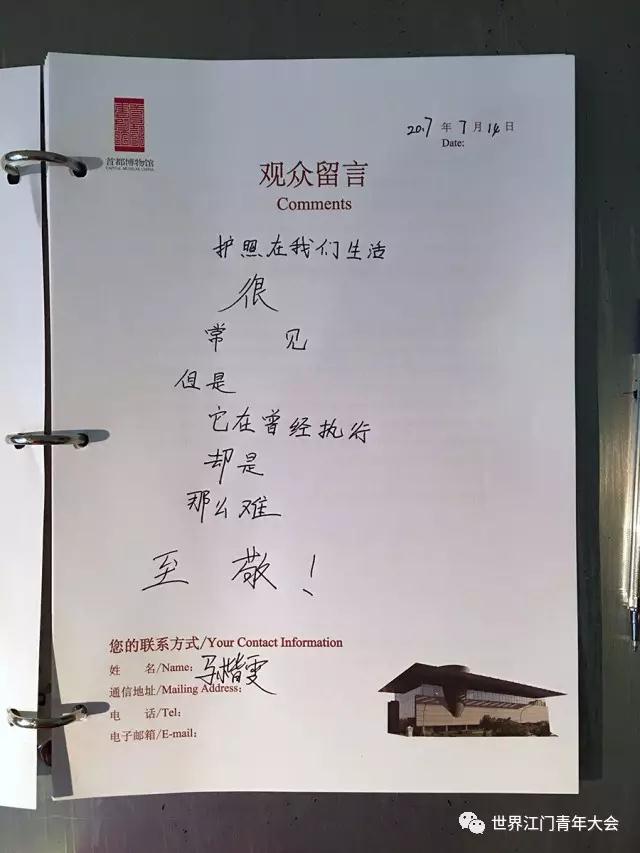 首都博物馆
CAPITAL MUSEUM, CHINA
2017 年 7 月 14 日
Date:
观众留言
Comments
护照在我们生活
很
常 见
但是
它在曾经执行
却是
那么难
至 敬！
您的联系方式/Your Contact Information
姓 名/Name: 马楷雯
通信地址/Mailing Address:
电 话/Tel:
电子邮箱/E-mail:
世界江门青年大会